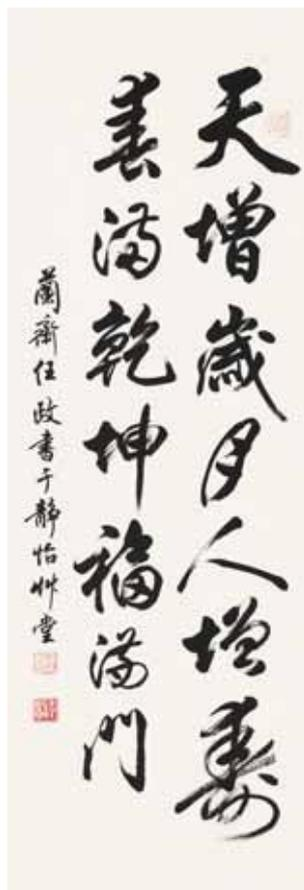 天增歲月人增壽
春滿乾坤福滿門
蘭齋任政書于靜怡艸堂